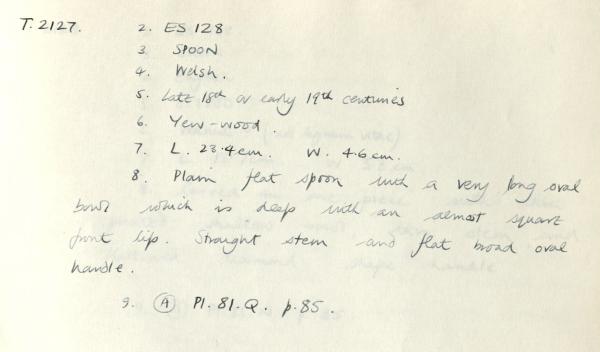 T.2127. 2. ES 128
3 SPOON
4. Welsh.
5. Late 18th or early 19th centuries
6. Yew-wood.
7. L. 23.4cm. W. 4.6cm.
8. Plain flat spoon with a very long oval
bowl which is deep with an almost square
front lip. Straight stem and flat broad oval
handle.
9. A Pl. 81. Q. p. 85.